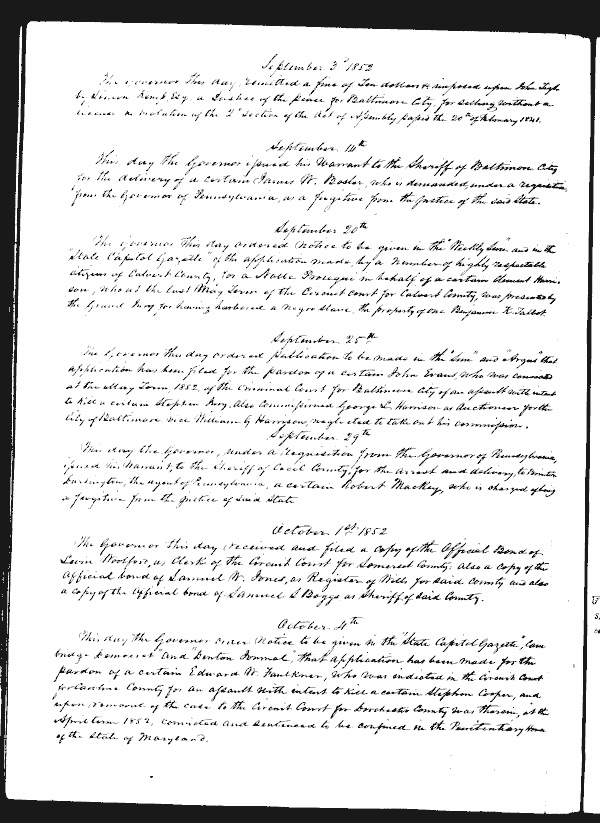 September 3d 1852
The Governor this day, remitted a fine of Ten dollars imposed upon John
by Simeon Kemp Esq. a Justice of the peace for Baltimore City, for selling without a
license in violation of the 2d Section of the Act of Assembly passed the 20th of February 1841.
September 14th
This day the Governor issued his Warrant to the Sheriff of Baltimore City
for the delivery of a certain James W. Bosler, who is demanded, under a requisition
from the Governor of Pennsylvania, as a fugitive from the justice of the said State.
September 20th
The Governor this day ordered notice to be given in the "Weekly Sun" and in the
"State Capitol Gazette" of the application made, by a number of highly respectable
citizens of Calvert County, for a Nolle Prosequi in behalf of a certain Clement Harri-
son, who at the last May Term of the Circuit Court for Calvert County, was presented by
the Grand Jury for having harbored a negro slave, the property of one Benjamin H. Talbot.
September 25th
The Governor this day ordered publication to be made in the "Sun" and "Argus" that
application has been filed for the pardon of a certain John Evans, who was convicted
at the May Term 1852, of the Criminal Court for Baltimore City of an assault with intent
to kill a certain Stephen Ivory. Also Commissioned George L. Harrison as Auctioneer for the
City of Baltimore vice William G Harrison, neglected to take out his commission.
September 29th
This day the Governor, under a Requisition from the Governor of Pennsylvania,
issued his Warrant, to the Sheriff of Cecil County, for the arrest and delivery, to
Darlington, the agent of Pennsylvania, a certain Robert Mackey, who is charged of being
a fugitive from the justice of said State
October 1st 1852
The Governor this day received and filed a copy of the Official Bond of
Levin Woolford, as Clerk of the Circuit Court for Somerset County: also a copy of the
Official bond of Samuel W. Jones, as Register of Wills for said County and also
a copy of the Official bond of Samuel S Boggs as Sheriff of said County.
October 4th
This day the Governor order notice to be given in the "State Capitol Gazette", Cam
bridge Democrat" and "Denton Journal", that application has been made for the
pardon of a certain Edward W. Faulkner, who was indicted in the Circuit Court
for Caroline County for an assault with intent to kill a certain Stephen Cooper, and
upon removal of the case to the Circuit Court for Dorchester County was therein, at the
April term 1852, convicted and sentenced to be confined in the Penitentiary House
of the State of Maryland.